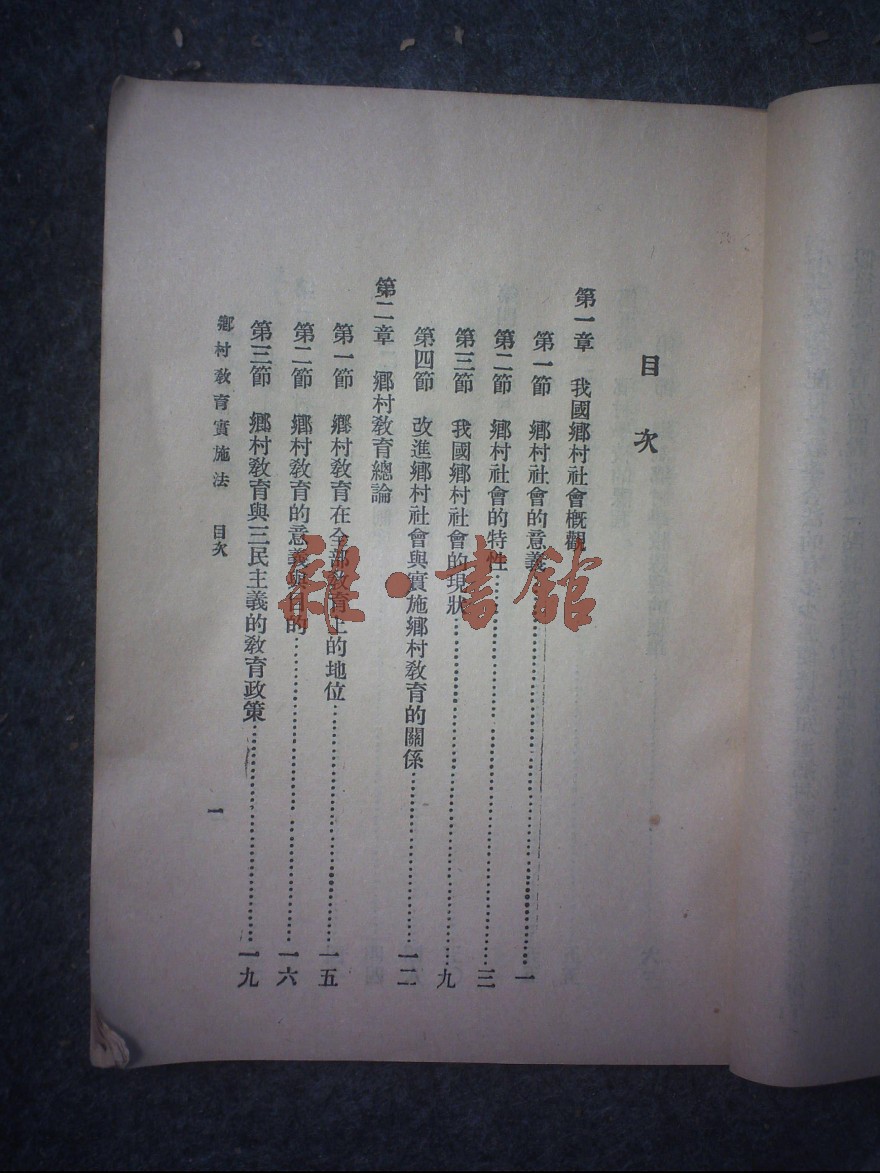 目次
第一章 我國鄉村社會概觀
第一節 鄉村社會的意義……一
第二節 鄉村社會的特性……三
第三節 我國鄉村社會的現狀……九
第四節 改進鄉村社會與實施鄉村教育的關係……一二
第二章 鄉村教育總論
第一節 鄉村教育在全部教育上的地位……一五
第二節 鄉村教育的意義與目的……一六
第三節 鄉村教育與三民主義的教育政策……一九
鄉村教育實施法 目次 一
雜·書館